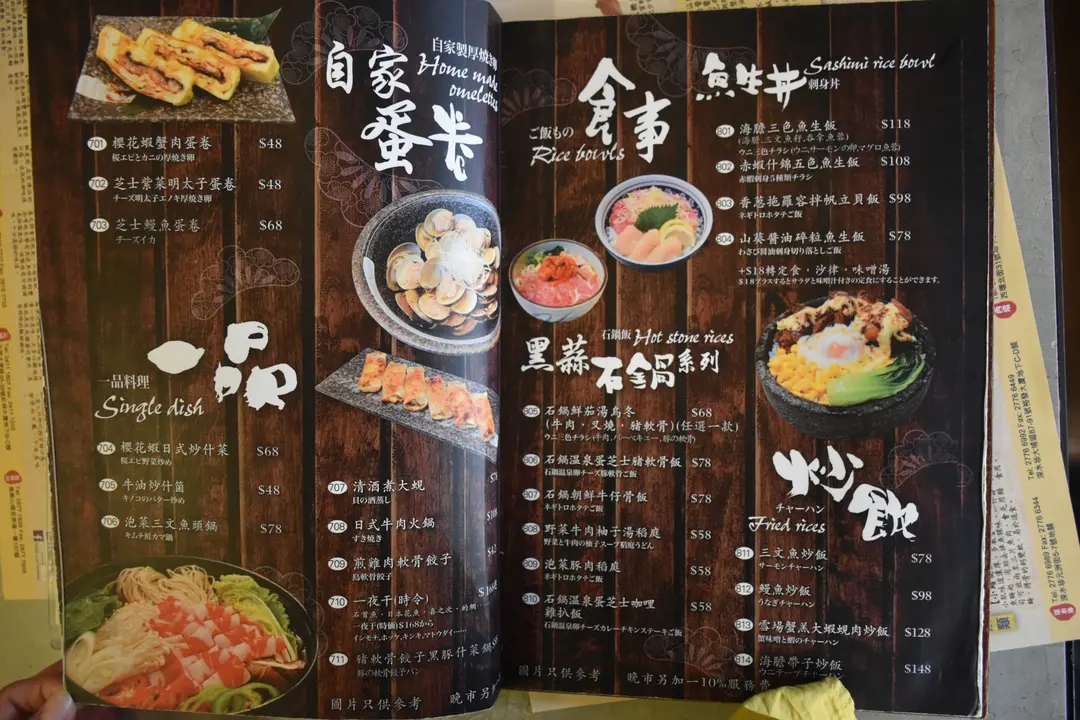 自家蛋卷
自家製厚焼き卵
Home made
omelettes
701 櫻花蝦蟹肉蛋卷 $48
桜エビとカニの厚焼き卵
702 芝士紫菜明太子蛋卷 $48
チーズ明太子エノキ厚焼き卵
703 芝士鰻魚蛋卷 $68
チーズイカ
一品
一品料理
Single dish
704 櫻花蝦日式炒什菜 $68
桜エビ野菜炒め
705 牛油炒什菌 $48
キノコのバター炒め
706 泡菜三文魚頭鍋 $78
キムチ鮭カマ鍋
707 清酒煮大蜆
貝の酒蒸し
708 日式牛肉火鍋
すき焼き
709 煎雞肉軟骨餃子
鳥軟骨餃子
710 一夜干(時令) $168
一夜干(時価)$168から
イシモチ,ホッケ,キンキ,マトウダイ……
711 豬軟骨餃子黑豚什菜鍋
豚の軟骨餃子パン
圖片只供參考 晚市另加
食事
ご飯もの
Rice bowls
魚生丼
Sashimi rice bowl
刺身丼
801 海膽三色魚生飯 $118
ウニ三色チラシ(ウニ,サーモンの卵,マグロ魚蓉)
802 赤蝦什錦五色魚生飯 $108
赤蝦刺身5種類チラシ
803 香蔥拖羅容拌帆立貝飯 $98
ネギトロホタテご飯
804 山葵醬油碎粒魚生飯 $78
わさび醤油刺身切り落としご飯
+$18轉定食,沙律,味噌湯
$18プラスするとサラダと味噌汁付きの定食にすることができます.
黑蒜石鍋系列
石鍋飯 Hot stone rices
805 石鍋鮮茄湯烏冬 $68
(牛肉,叉燒,豬軟骨)(任選一款)
ウニ三色チラシ(牛肉,バーベキュー,豚の軟骨)
806 石鍋温泉蛋芝士豬軟骨飯 $78
石鍋温泉卵チーズ豚軟骨ご飯
807 石鍋朝鮮牛仔骨飯 $78
ネギトロホタテご飯
808 野菜牛肉柚子湯稻庭 $58
野菜と牛肉の柚子スープ稲庭うどん
809 泡菜豚肉稻庭 $58
ネギトロホタテご飯
810 石鍋温泉蛋芝士咖哩
雞扒飯 $58
石鍋温泉卵チーズカレーチキンステーキご飯
炒飯
チャーハン
Fried rices
811 三文魚炒飯 $78
サーモンチャーハン
812 鰻魚炒飯 $98
うなぎチャーハン
813 雪場蟹羔大蝦蜆肉炒飯 $128
蟹味噌と蝦のチャーハン
814 海膽帶子炒飯 $148
ウニテーブチャーハン
圖片只供參考 晚市另加一10%服務費
Tel: 2776 6992 Fax: 2776 6449
深水埗大埔道87-91號裕發大廈地下C-D舖
Tel: 2776 6989 Fax: 2776 6344